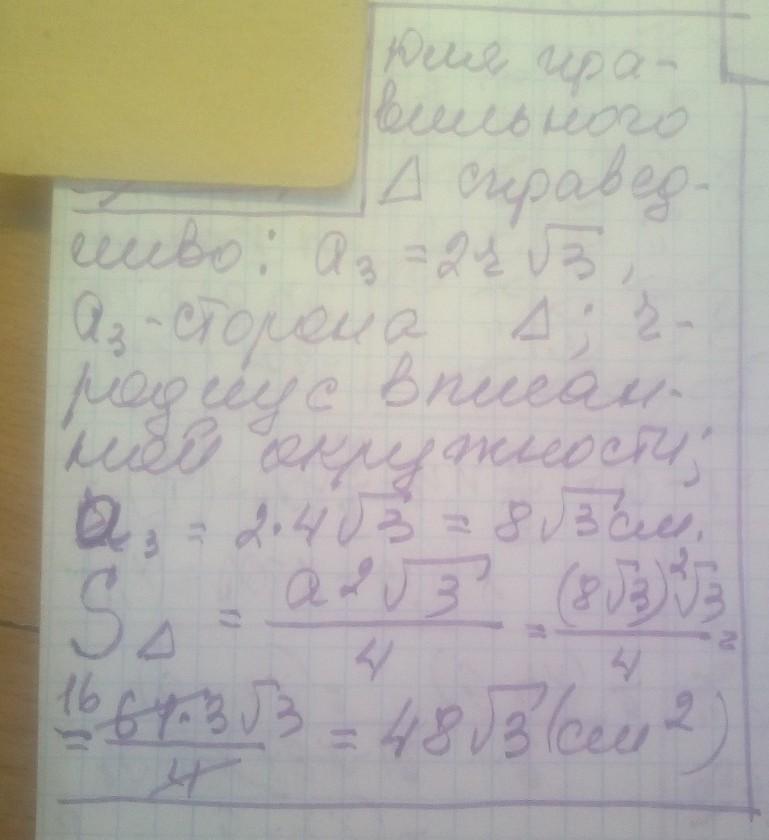 Для пра-
вильного
Δ справед-
ливо: a₃ = 2r√3,
a₃ - сторона Δ; r -
радиус вписан-
ной окружности;
a₃ = 2·4√3 = 8√3 см.
S_Δ = a²√3/4 = (8√3)²√3/4 =
= 16 64·3√3/4 = 48√3 (см²)